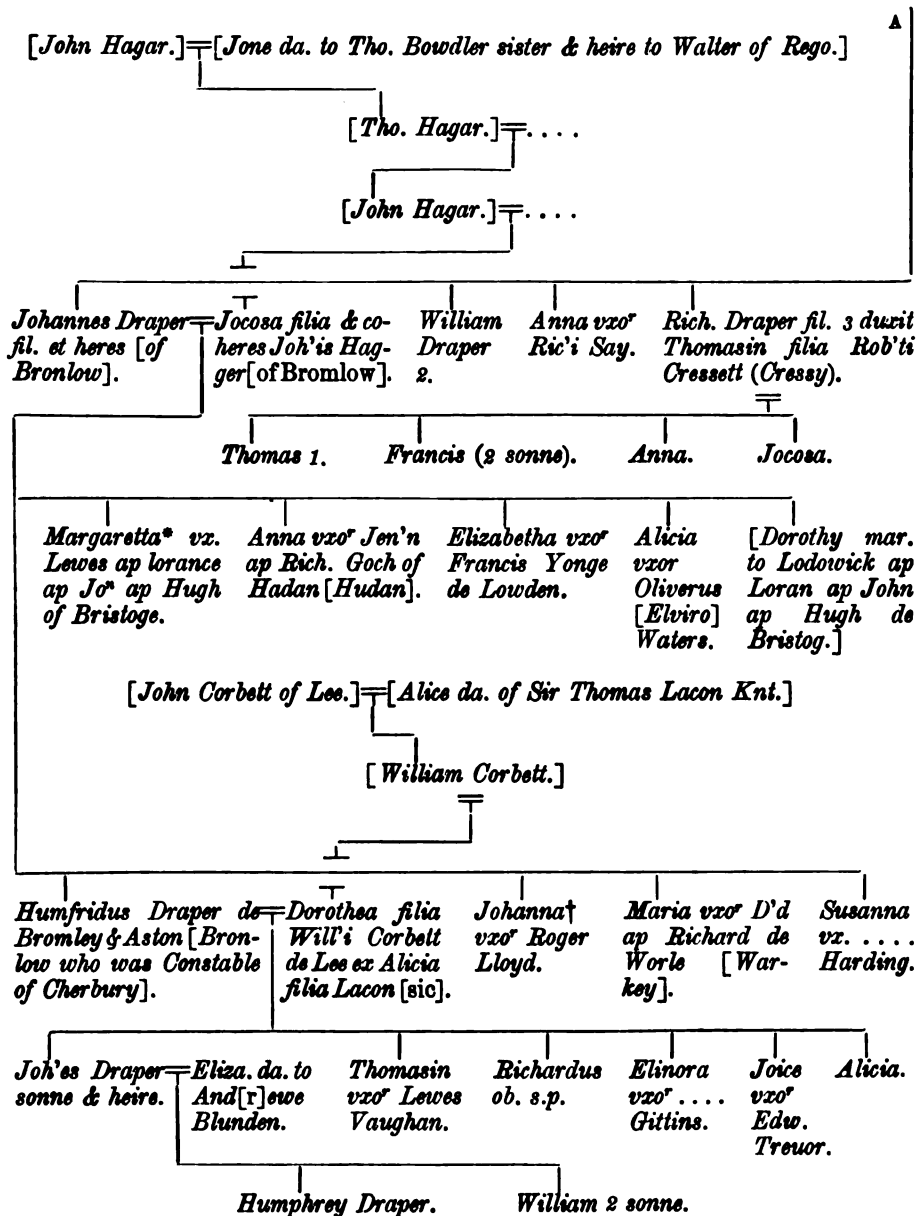 A
[John Hagar.]=[Jone da. to Tho. Bowdler sister & heire to Walter of Rego.]
[Tho. Hagar.]=. . . .
[John Hagar.]=. . . .
Johannes Draper=
fil. et heres [of
Bronlow].
Jocosa filia & co-
heres Joh'is Hag-
ger[of Bromlow].
William
Draper
2.
Anna vxoʳ
Ric'i Say.
Rich. Draper fil. 3 duxit
Thomasin filia Rob'ti
Cressett (Cressy).
Thomas 1.
Francis (2 sonne).
Anna.
Jocosa.
Margaretta* vx.
Lewes ap lorance
ap Joⁿ ap Hugh
of Bristoge.
Anna vxoʳ Jen'n
ap Rich. Goch of
Hadan [Hudan].
Elizabetha vxoʳ
Francis Yonge
de Lowden.
Alicia
vxor
Oliverus
[Elviro]
Waters.
[Dorothy mar.
to Lodowick ap
Loran ap John
ap Hugh de
Bristog.]
[John Corbett of Lee.]=[Alice da. of Sir Thomas Lacon Knt.]
[William Corbett.]
Humfridus Draper de=
Bromley & Aston [Bron-
low who was Constable
of Cherbury].
Dorothea filia
Will'i Corbett
de Lee ex Alicia
filia Lacon [sic].
Johanna†
vxoʳ Roger
Lloyd.
Maria vxoʳ D'd
ap Richard de
Worle [War-
key].
Susanna
vx. . . . .
Harding.
Joh'es Draper=
sonne & heire.
Eliza. da. to
And[r]ewe
Blunden.
Thomasin
vxoʳ Lewes
Vaughan.
Richardus
ob. s.p.
Elinora
vxoʳ . . . .
Gittins.
Joice
vxoʳ
Edw.
Treuor.
Alicia.
Humphrey Draper.
William 2 sonne.